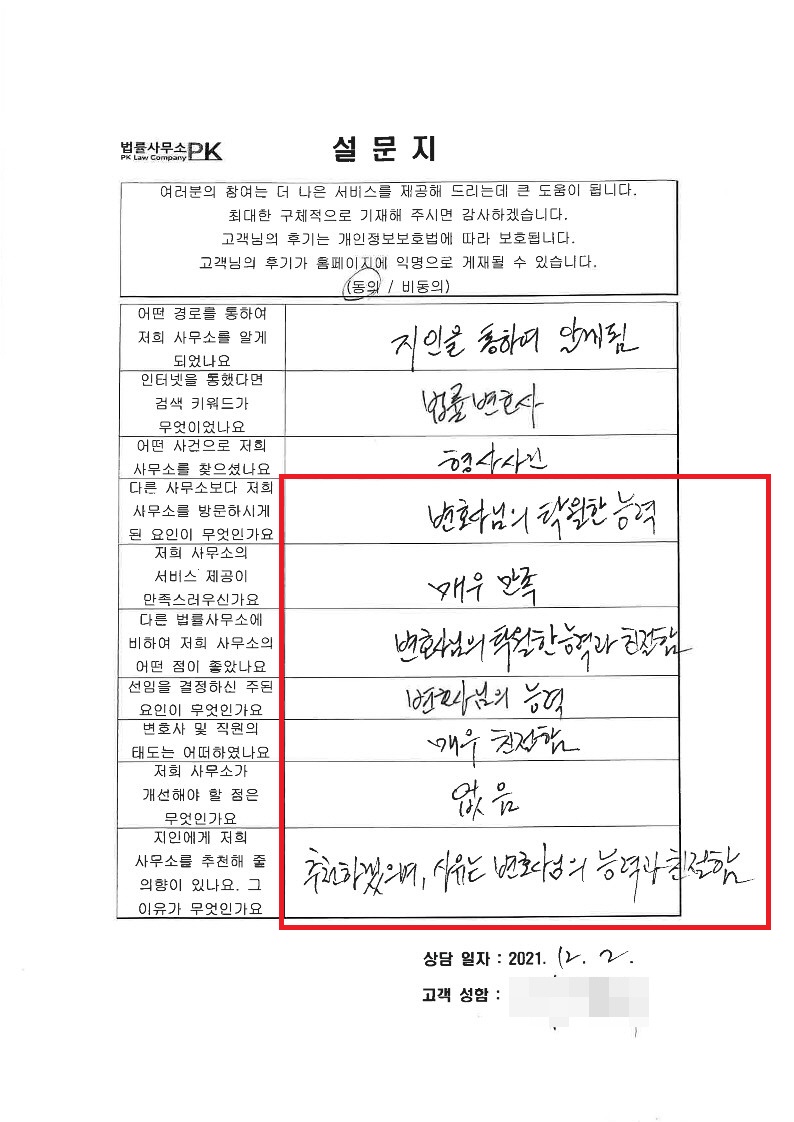 법률사무소PK
PK Law Company
설 문 지
여러분의 참여는 더 나은 서비스를 제공해 드리는데 큰 도움이 됩니다.
최대한 구체적으로 기재해 주시면 감사하겠습니다.
고객님의 후기는 개인정보보호법에 따라 보호됩니다.
고객님의 후기가 홈페이지에 익명으로 게재될 수 있습니다.
(동의 / 비동의)
어떤 경로를 통하여
저희 사무소를 알게
되었나요
지인을 통하여 알게됨
인터넷을 통했다면
검색 키워드가
무엇이었나요
법률변호사
어떤 사건으로 저희
사무소를 찾으셨나요
형사사건
다른 사무소보다 저희
사무소를 방문하시게
된 요인이 무엇인가요
변호사님의 탁월한 능력
저희 사무소의
서비스 제공이
만족스러우신가요
매우 만족
다른 법률사무소에
비하여 저희 사무소의
어떤 점이 좋았나요
변호사님의 탁월한 능력과 친절함
선임을 결정하신 주된
요인이 무엇인가요
변호사님의 능력
변호사 및 직원의
태도는 어떠하였나요
매우 친절함
저희 사무소가
개선해야 할 점은
무엇인가요
없음
지인에게 저희
사무소를 추천해 줄
의향이 있나요. 그
이유가 무엇인가요
추천하겠으며, 사유는 변호사님의 능력과 친절함
상담 일자 : 2021. 12. 2.
고객 성함 :